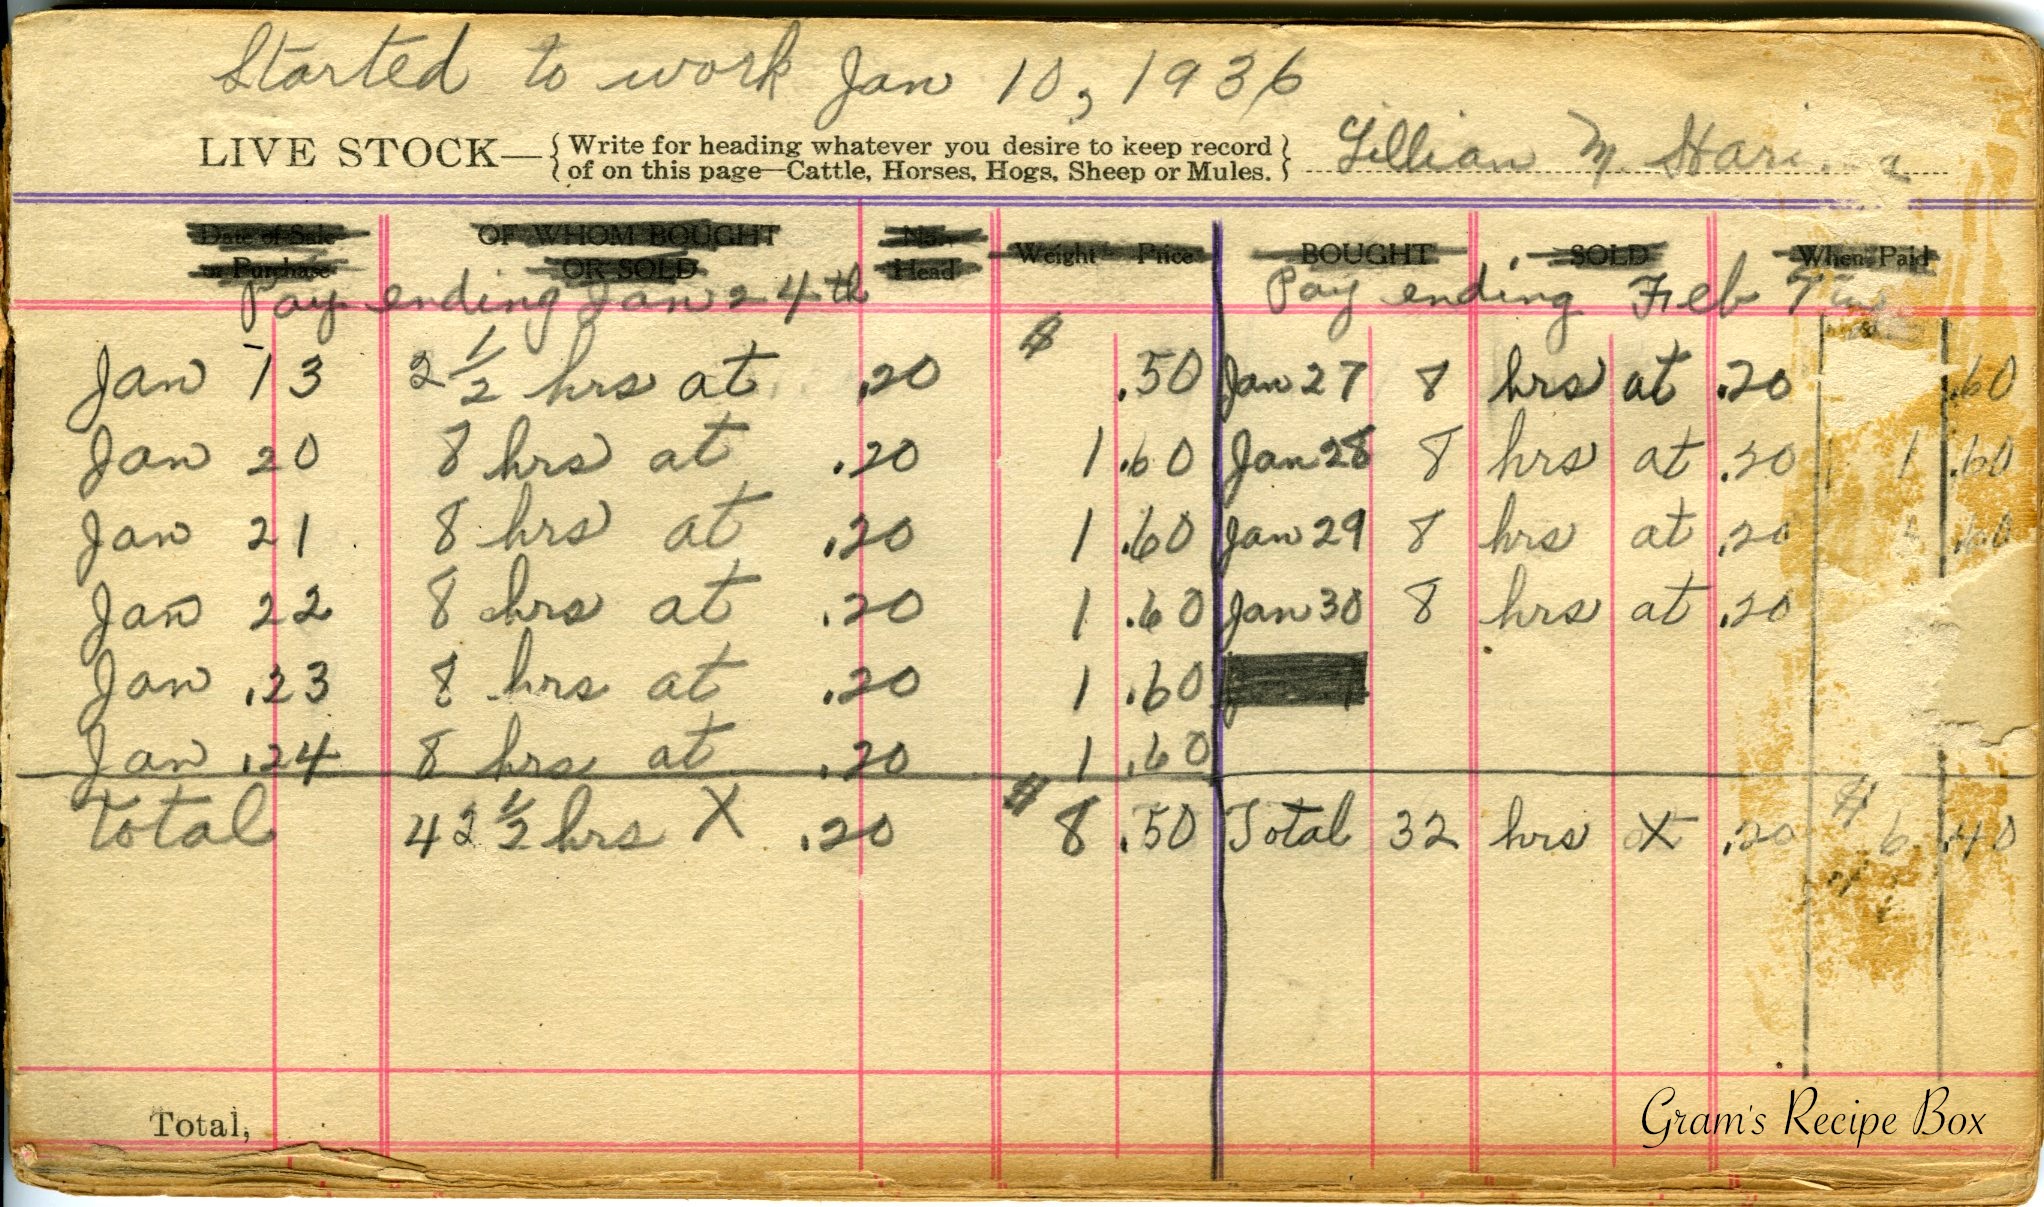 Started to work Jan 10, 1936
LIVE STOCK— { Write for heading whatever you desire to keep record
of on this page—Cattle, Horses, Hogs, Sheep or Mules. } Lillian M.
Date of Sale or Purchase OF WHOM BOUGHT OR SOLD No. Head Weight Price BOUGHT SOLD When Paid
Pay ending Jan 24th
Jan 13 2 1/2 hrs at .20 $ .50
Jan 20 8 hrs at .20 1 .60
Jan 21 8 hrs at .20 1 .60
Jan 22 8 hrs at .20 1 .60
Jan .23 8 hrs at .20 1 .60
Jan .24 8 hrs at .20 1 .60
Total 42 1/2 hrs X .20 $ 8 .50
Pay ending Feb 7
Jan 27 8 hrs at .20 .60
Jan 28 8 hrs at .20 1 .60
Jan 29 8 hrs at .20 1 .60
Jan 30 8 hrs at .20
Total 32 hrs X .20 $ 6 .40
Total,
Gram's Recipe Box